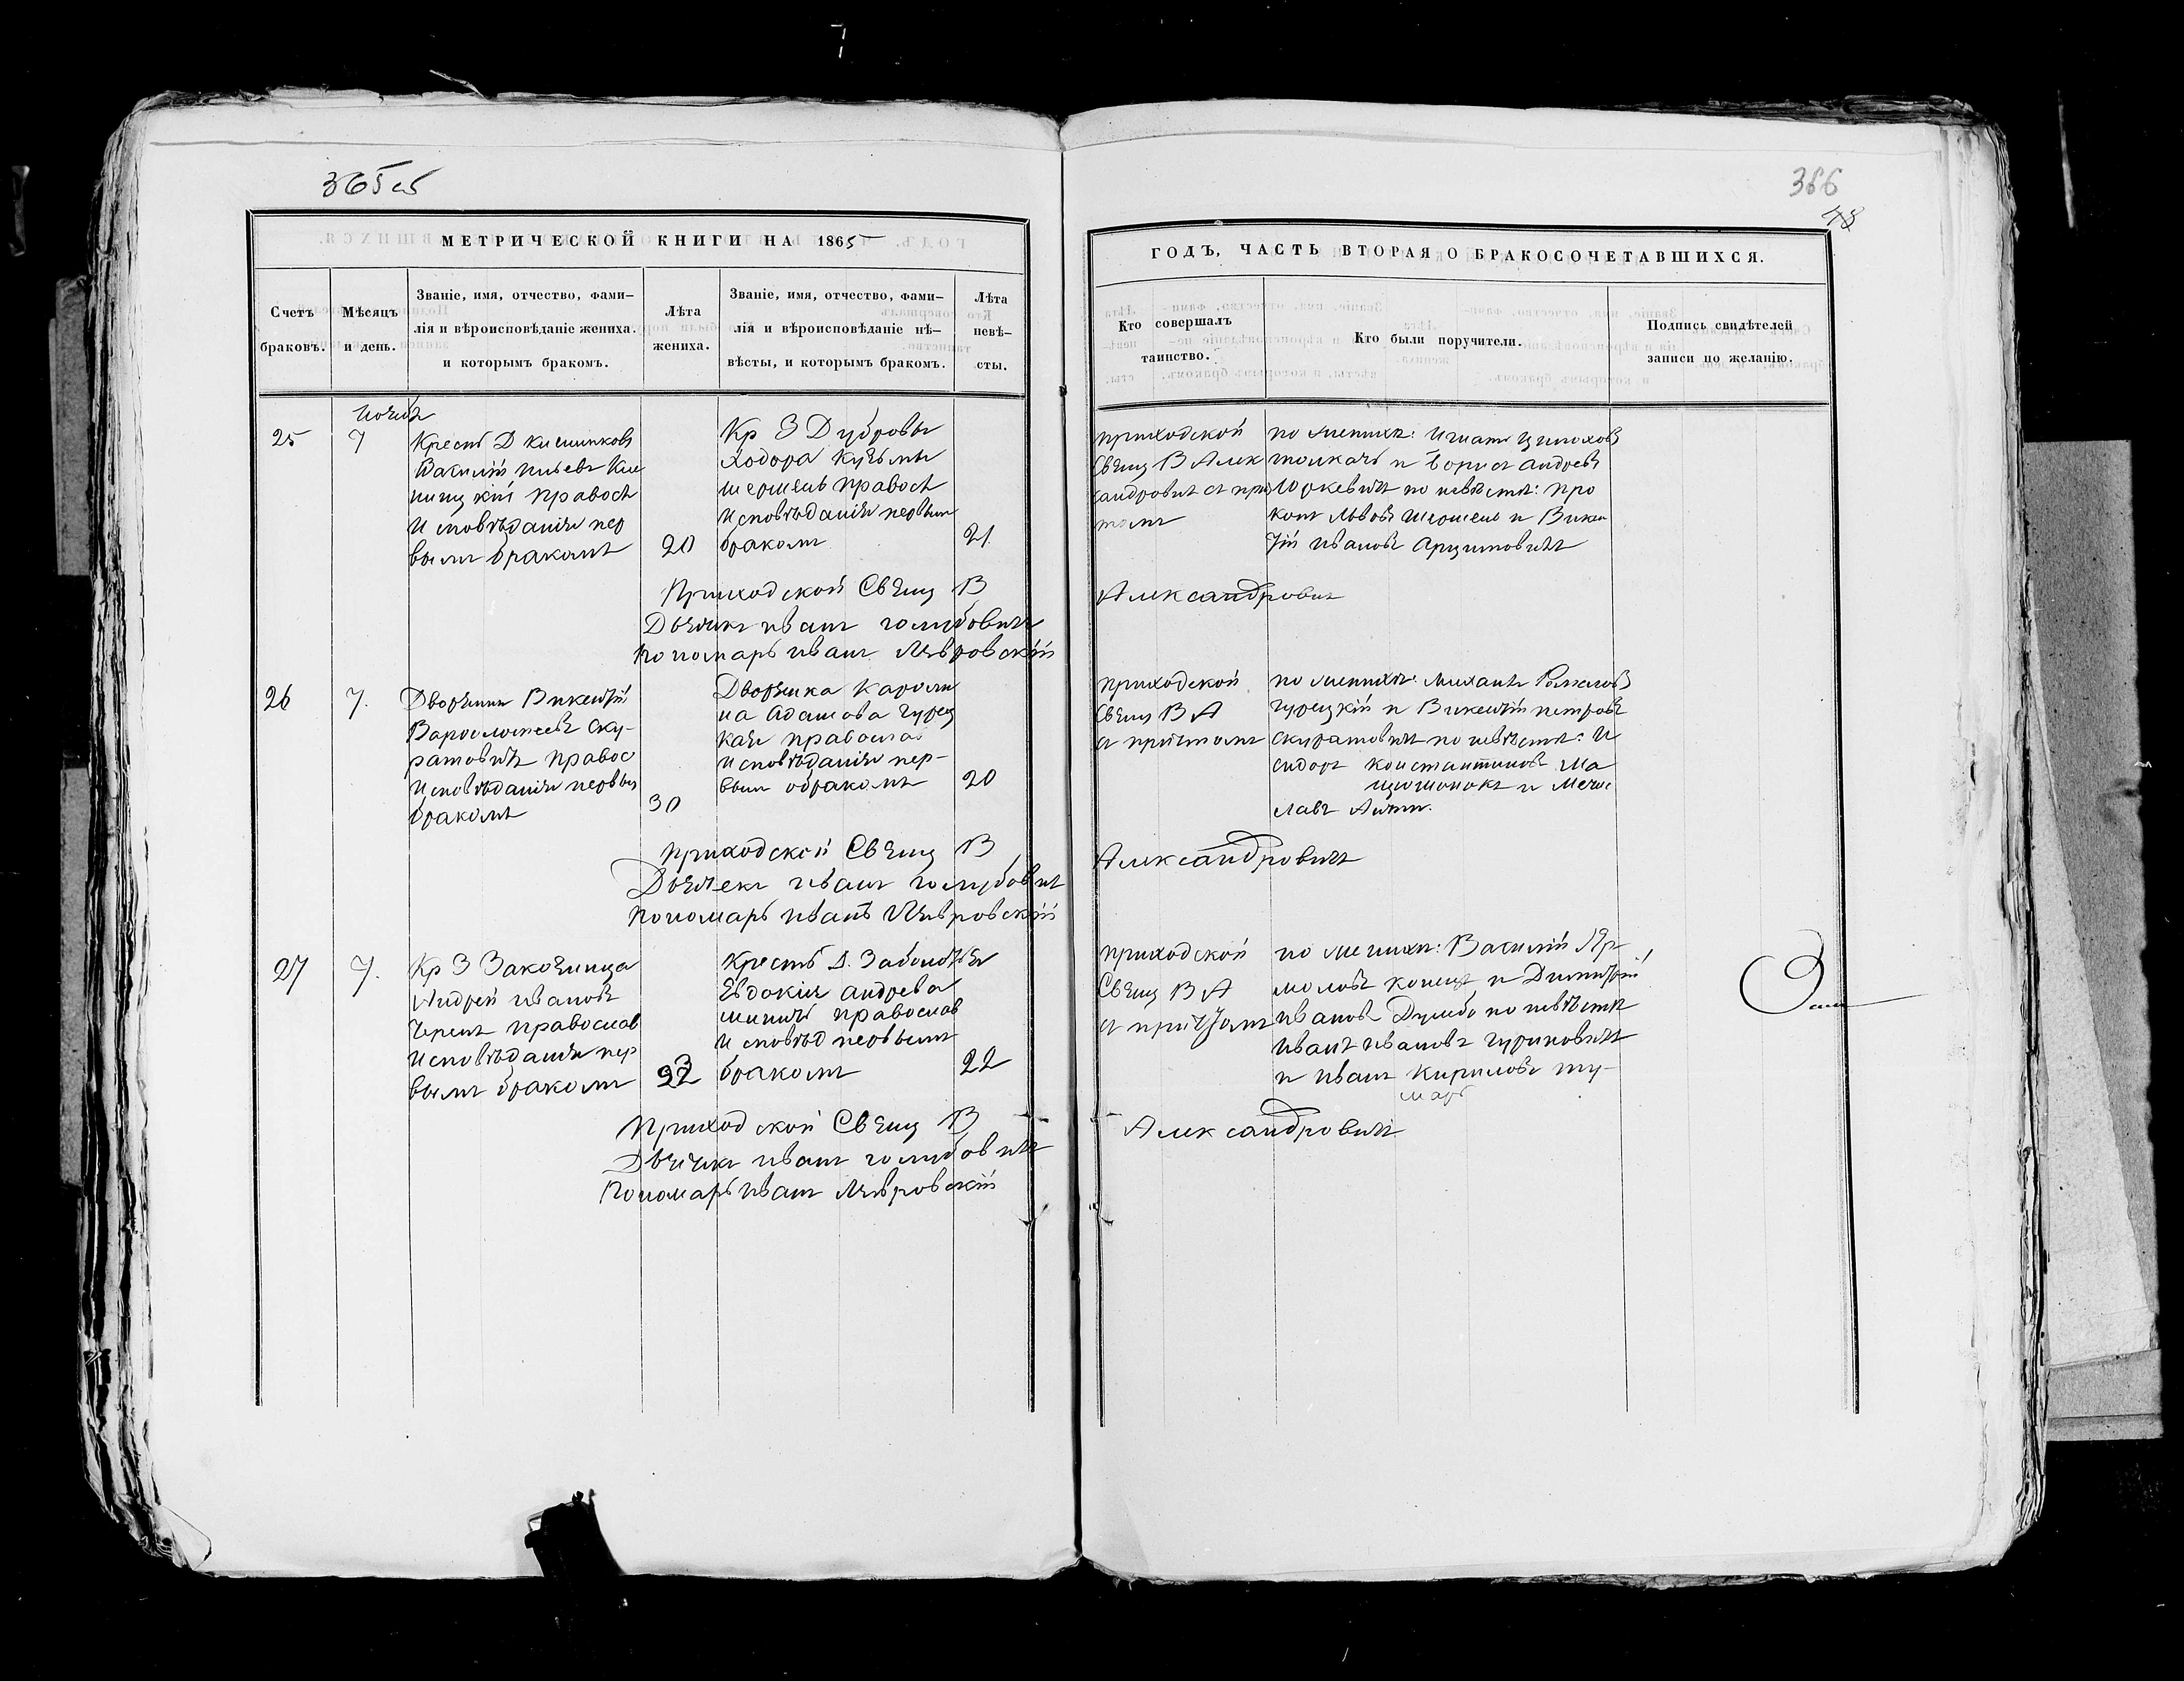 365 об
МЕТРИЧЕСКОЙ КНИГИ НА 1865
Счетъ браковъ.
Мѣсяцъ и день.
Званіе, имя, отчество, фами-
лія и вѣроисповѣданіе жениха.
и которымъ бракомъ.
Лѣта
жениха.
Званіе, имя, отчество, фами-
лія и вѣроисповѣданіе нѣ-
вѣсты, и которымъ бракомъ.
Лѣта
невѣ-
сты.
25
7
Крестъ Д
Василій
Правосл
Исповѣданія пер
вымъ бракомъ
20
Кр З Дубровы
Ходора Кузьмы
Шершень Правосл
Исповѣданія первым
бракомъ
21
Приходской Свящ В
Дьячекъ Иванъ Голубовичъ
Пономарь Иванъ Лавровскій
26
7.
Дворянин Викентій
Варфоломеевъ Ску-
ратовичъ Правос
Исповѣданія первым
бракомъ
30
Дворянка Кароли
на Адамова Турец
кая православ
Исповѣданія пер-
вым бракомъ
20
Приходской Свящ В
Дьячекъ Иванъ Голубовичъ
Пономарь Иванъ Лавровскій
27
7.
Кр З
Андрей Ивановъ
православ
Исповѣданія пер
вымъ бракомъ
Крестъ Д.
Евдокія Андрева
православ
Исповѣд первымъ
бракомъ
22
Приходской Свящ В
Дьячекъ Иванъ Голубовичъ
Пономарь Иванъ Лавровскій
366
48
ГОДЪ, ЧАСТЬ ВТОРАЯ О БРАКОСОЧЕТАВШИХСЯ.
Кто совершалъ
таинство.
Кто были поручители.
Подпись свидѣтелей
записи по желанію.
приходской
Свящ В Алек
сандровичъ съ при
томъ
по женихѣ: Игнатъ
Толкачъ и Борисъ Андреевъ
Юркевичъ по невѣстѣ: Про
копъ Львовъ Шершень и Викен
тій Ивановъ Арцимовичъ
Александровичъ
приходской
Свящ В А
съ притомъ
по женихѣ: Михаилъ
Турецкій и Викентій Петровъ
Скуратовичъ по невѣстѣ: И
сидоръ Константиновъ Ма
и Мечис
лавъ
Александровичъ
приходской
Свящ В А
съ притомъ
по женихѣ: Василій Яр
моловъ и Димитрій
Ивановъ по невѣстѣ
Иванъ Ивановъ Гуриновичъ
и Иванъ Кириловъ
Александровичъ